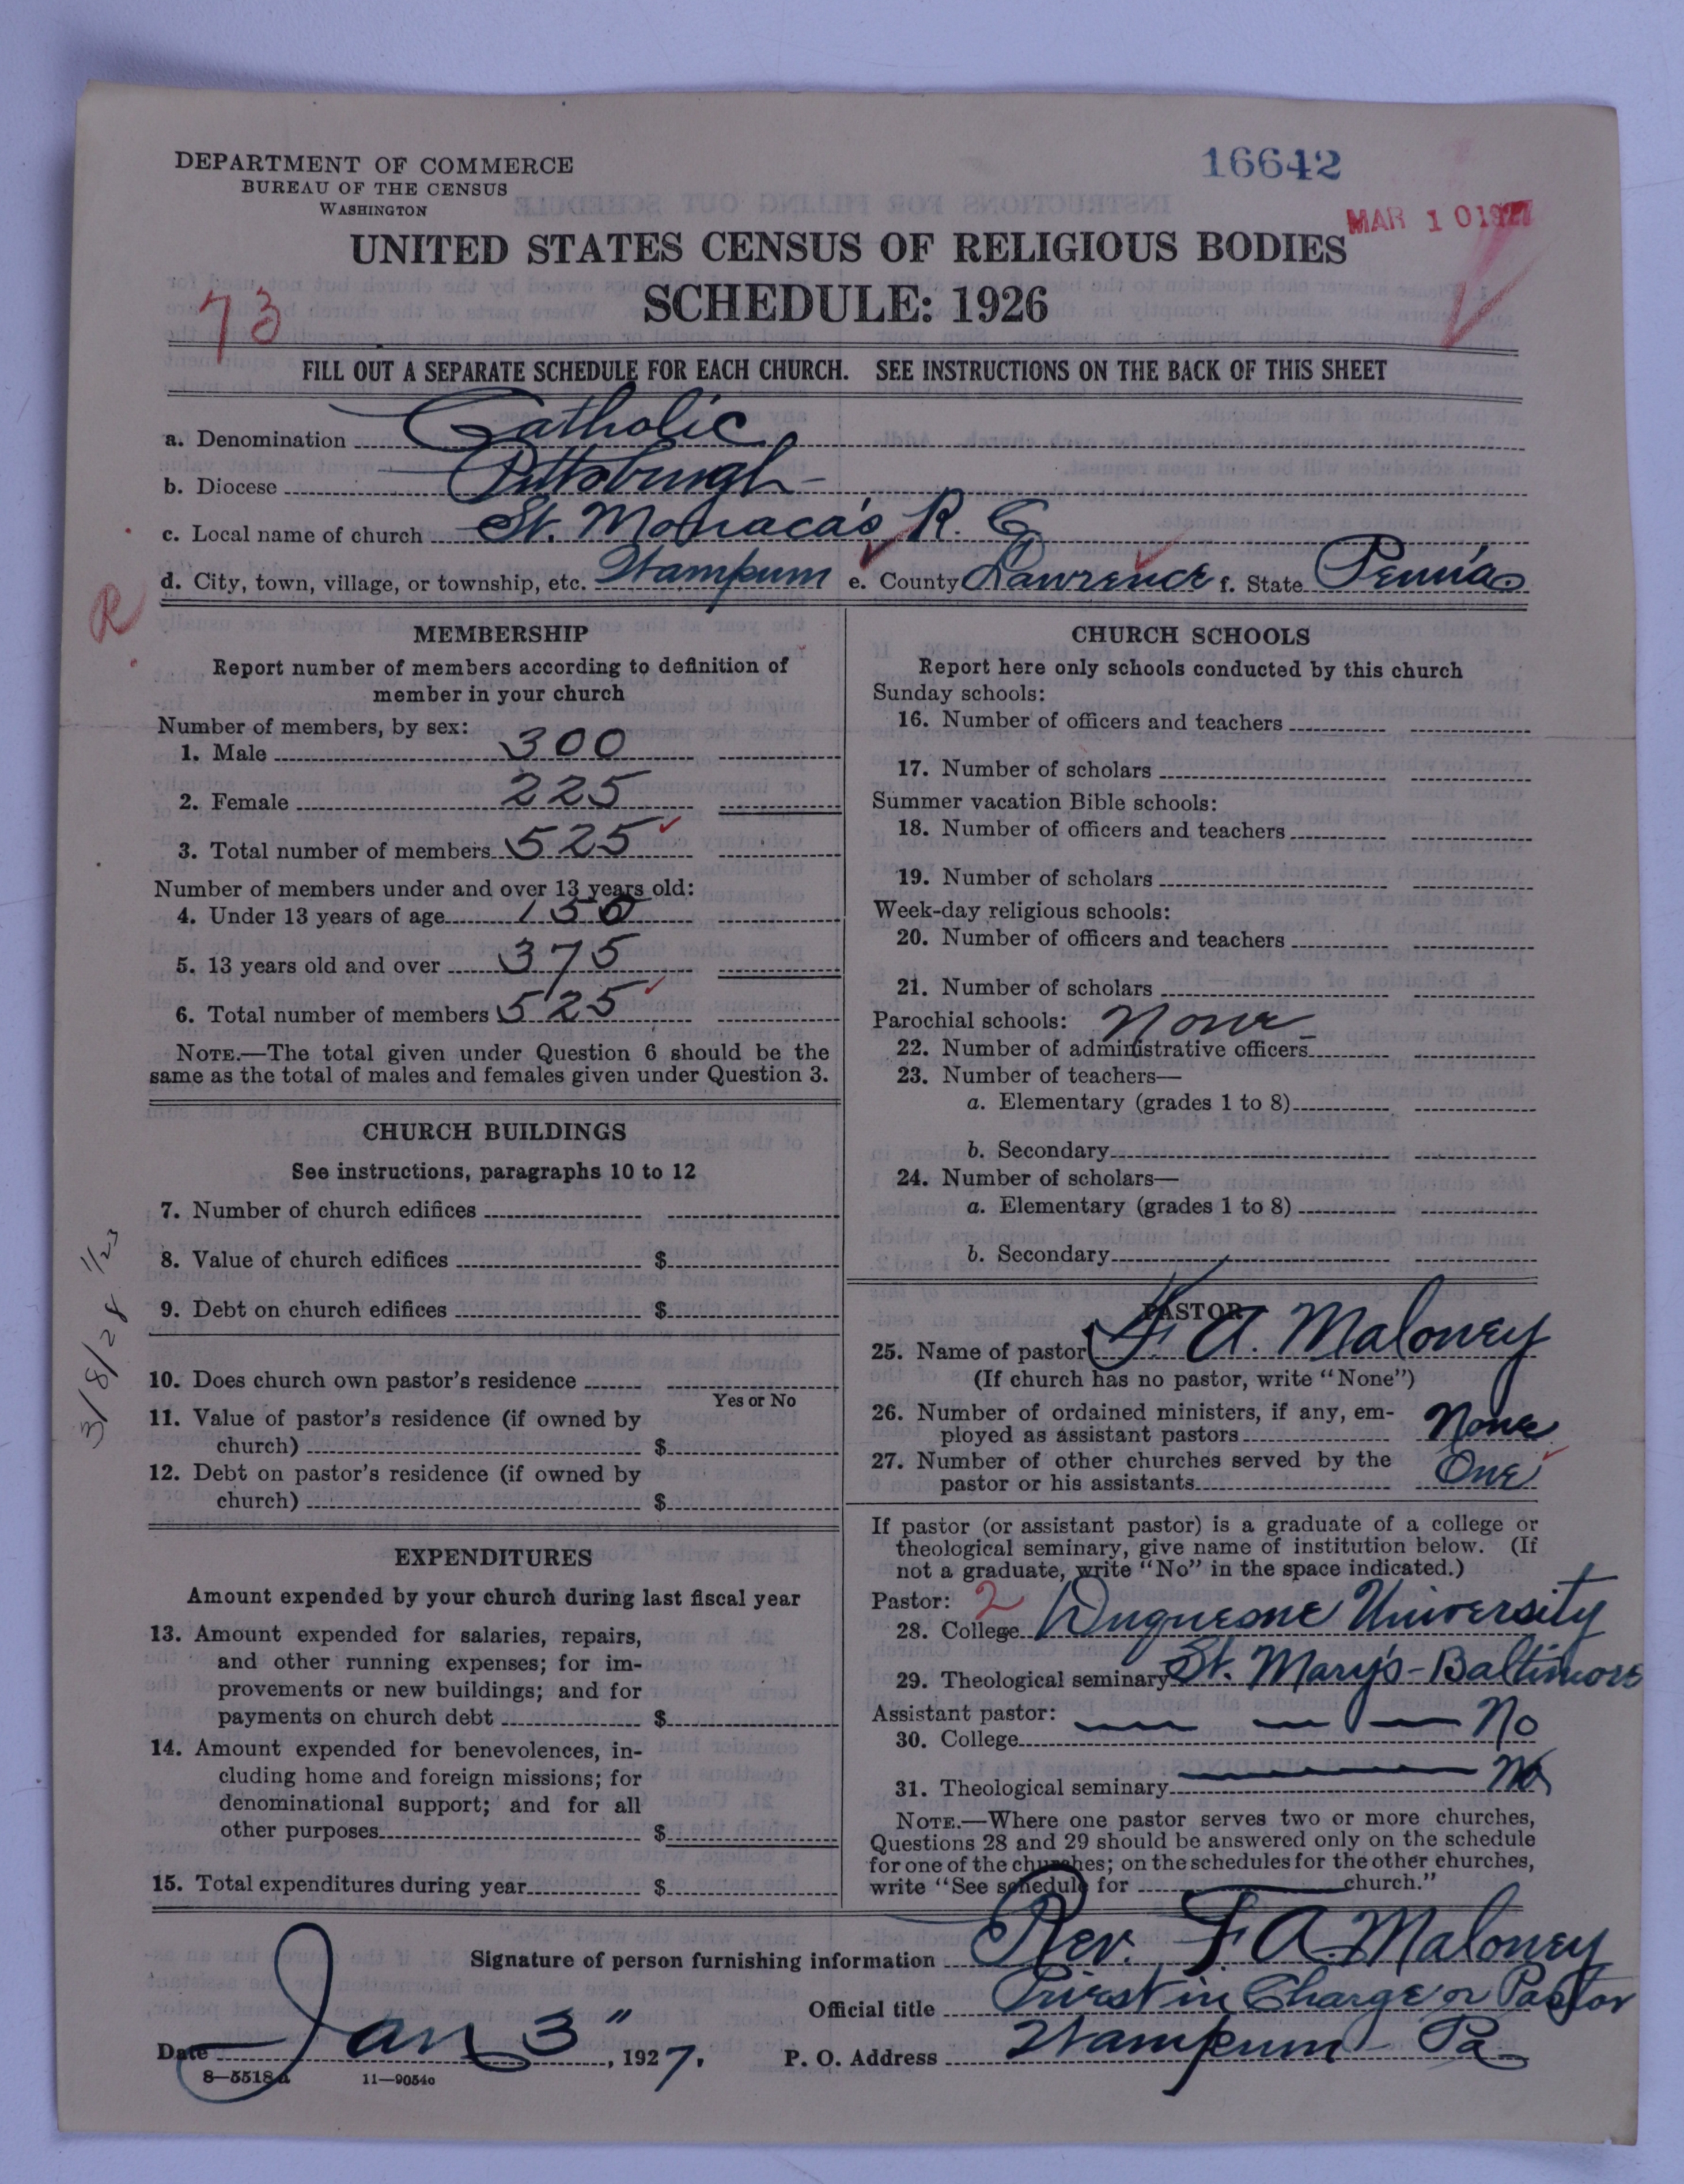 DEPARTMENT OF COMMERCE
BUREAU OF THE CENSUS
WASHINGTON
16642
MAR 10 1927
UNITED STATES CENSUS OF RELIGIOUS BODIES
SCHEDULE: 1926
73
FILL OUT A SEPARATE SCHEDULE FOR EACH CHURCH. SEE INSTRUCTIONS ON THE BACK OF THIS SHEET
a. Denomination Catholic
b. Diocese Pittsburgh
c. Local name of church St. Monaca's R. C
d. City, town, village, or township, etc. Wampum e. County Lawrence f. State Penn'a
R
MEMBERSHIP
Report number of members according to definition of
member in your church
Number of members, by sex:
1. Male 300
2. Female 225
3. Total number of members 525
Number of members under and over 13 years old:
4. Under 13 years of age 150
5. 13 years old and over 375
6. Total number of members 525
NOTE.—The total given under Question 6 should be the
same as the total of males and females given under Question 3.
CHURCH BUILDINGS
See instructions, paragraphs 10 to 12
7. Number of church edifices
8. Value of church edifices $
9. Debt on church edifices $
10. Does church own pastor's residence
Yes or No
11. Value of pastor's residence (if owned by
church) $
12. Debt on pastor's residence (if owned by
church) $
3/8/28 1/23
EXPENDITURES
Amount expended by your church during last fiscal year
13. Amount expended for salaries, repairs,
and other running expenses; for im-
provements or new buildings; and for
payments on church debt $
14. Amount expended for benevolences, in-
cluding home and foreign missions; for
denominational support; and for all
other purposes $
15. Total expenditures during year $
CHURCH SCHOOLS
Report here only schools conducted by this church
Sunday schools:
16. Number of officers and teachers
17. Number of scholars
Summer vacation Bible schools:
18. Number of officers and teachers
19. Number of scholars
Week-day religious schools:
20. Number of officers and teachers
21. Number of scholars
Parochial schools: None
22. Number of administrative officers
23. Number of teachers—
a. Elementary (grades 1 to 8)
b. Secondary
24. Number of scholars—
a. Elementary (grades 1 to 8)
b. Secondary
PASTOR
25. Name of pastor F. A. Maloney
(If church has no pastor, write "None")
26. Number of ordained ministers, if any, em-
ployed as assistant pastors None
27. Number of other churches served by the
pastor or his assistants One
If pastor (or assistant pastor) is a graduate of a college or
theological seminary, give name of institution below. (If
not a graduate, write "No" in the space indicated.)
Pastor: 2
28. College Duquesne University
29. Theological seminary St. Mary's - Baltimore
Assistant pastor:
30. College No
31. Theological seminary No
NOTE.—Where one pastor serves two or more churches,
Questions 28 and 29 should be answered only on the schedule
for one of the churches; on the schedules for the other churches,
write "See schedule for church."
Signature of person furnishing information Rev. F. A. Maloney
Official title Priest in Charge or Pastor
Date Jan 3", 1927. P. O. Address Wampum Pa
8—5518a 11—9054c